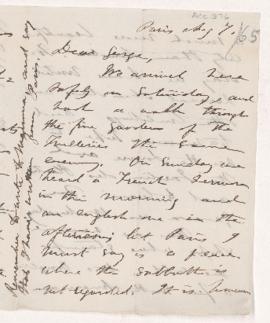 Paris Aug 7. /65
Dear George,
We arrived here
safely on Saturday, and
took a walk through
the fine gardens of the
Tuilleries the same
evening. On Sunday we
heard a French sermon
in the morning and
an english one in the
afternoon, but Paris I
must say is a place
where the sabbath is
not regarded. It is
Remember to and say
that I have written from Paris.